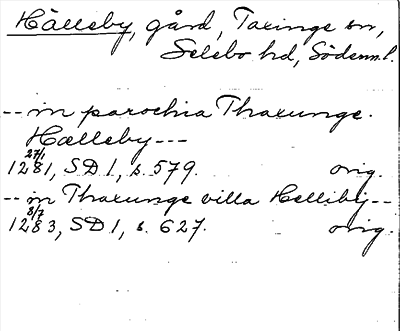 Hälleby, gård, Taxinge sn,
Selebo hd, Södenml.
-- in parochia Thaxunge.
Hælleby ---
27/1
1281, SD 1, s. 579. orig.
-- in Thaxunge villa Hellibij --
8/7
1283, SD 1, s. 627. orig.